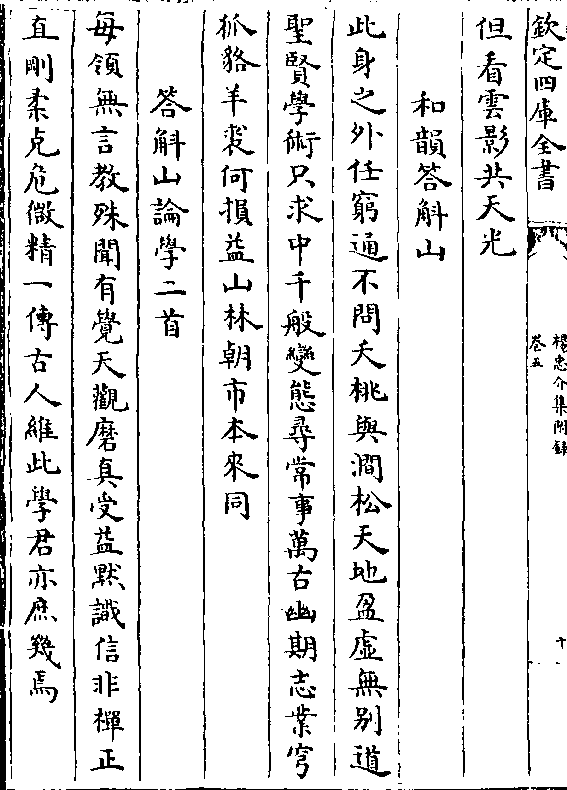 欽定四庫全書
楊忠介集附錄
卷五
十
但看雲影共天光
和韻答斛山
此身之外任窮通不問夭桃與澗松天地盈虛無别道
聖賢學術只求中千般變態尋常事萬古幽期志業穹
狐貉羊裘何損益山林朝市本來同
答斛山論學二首
每領無言教殊聞有覺天觀磨真受益黙識信非禪正
直剛柔克危微精一傳古人維此學君亦庶幾焉